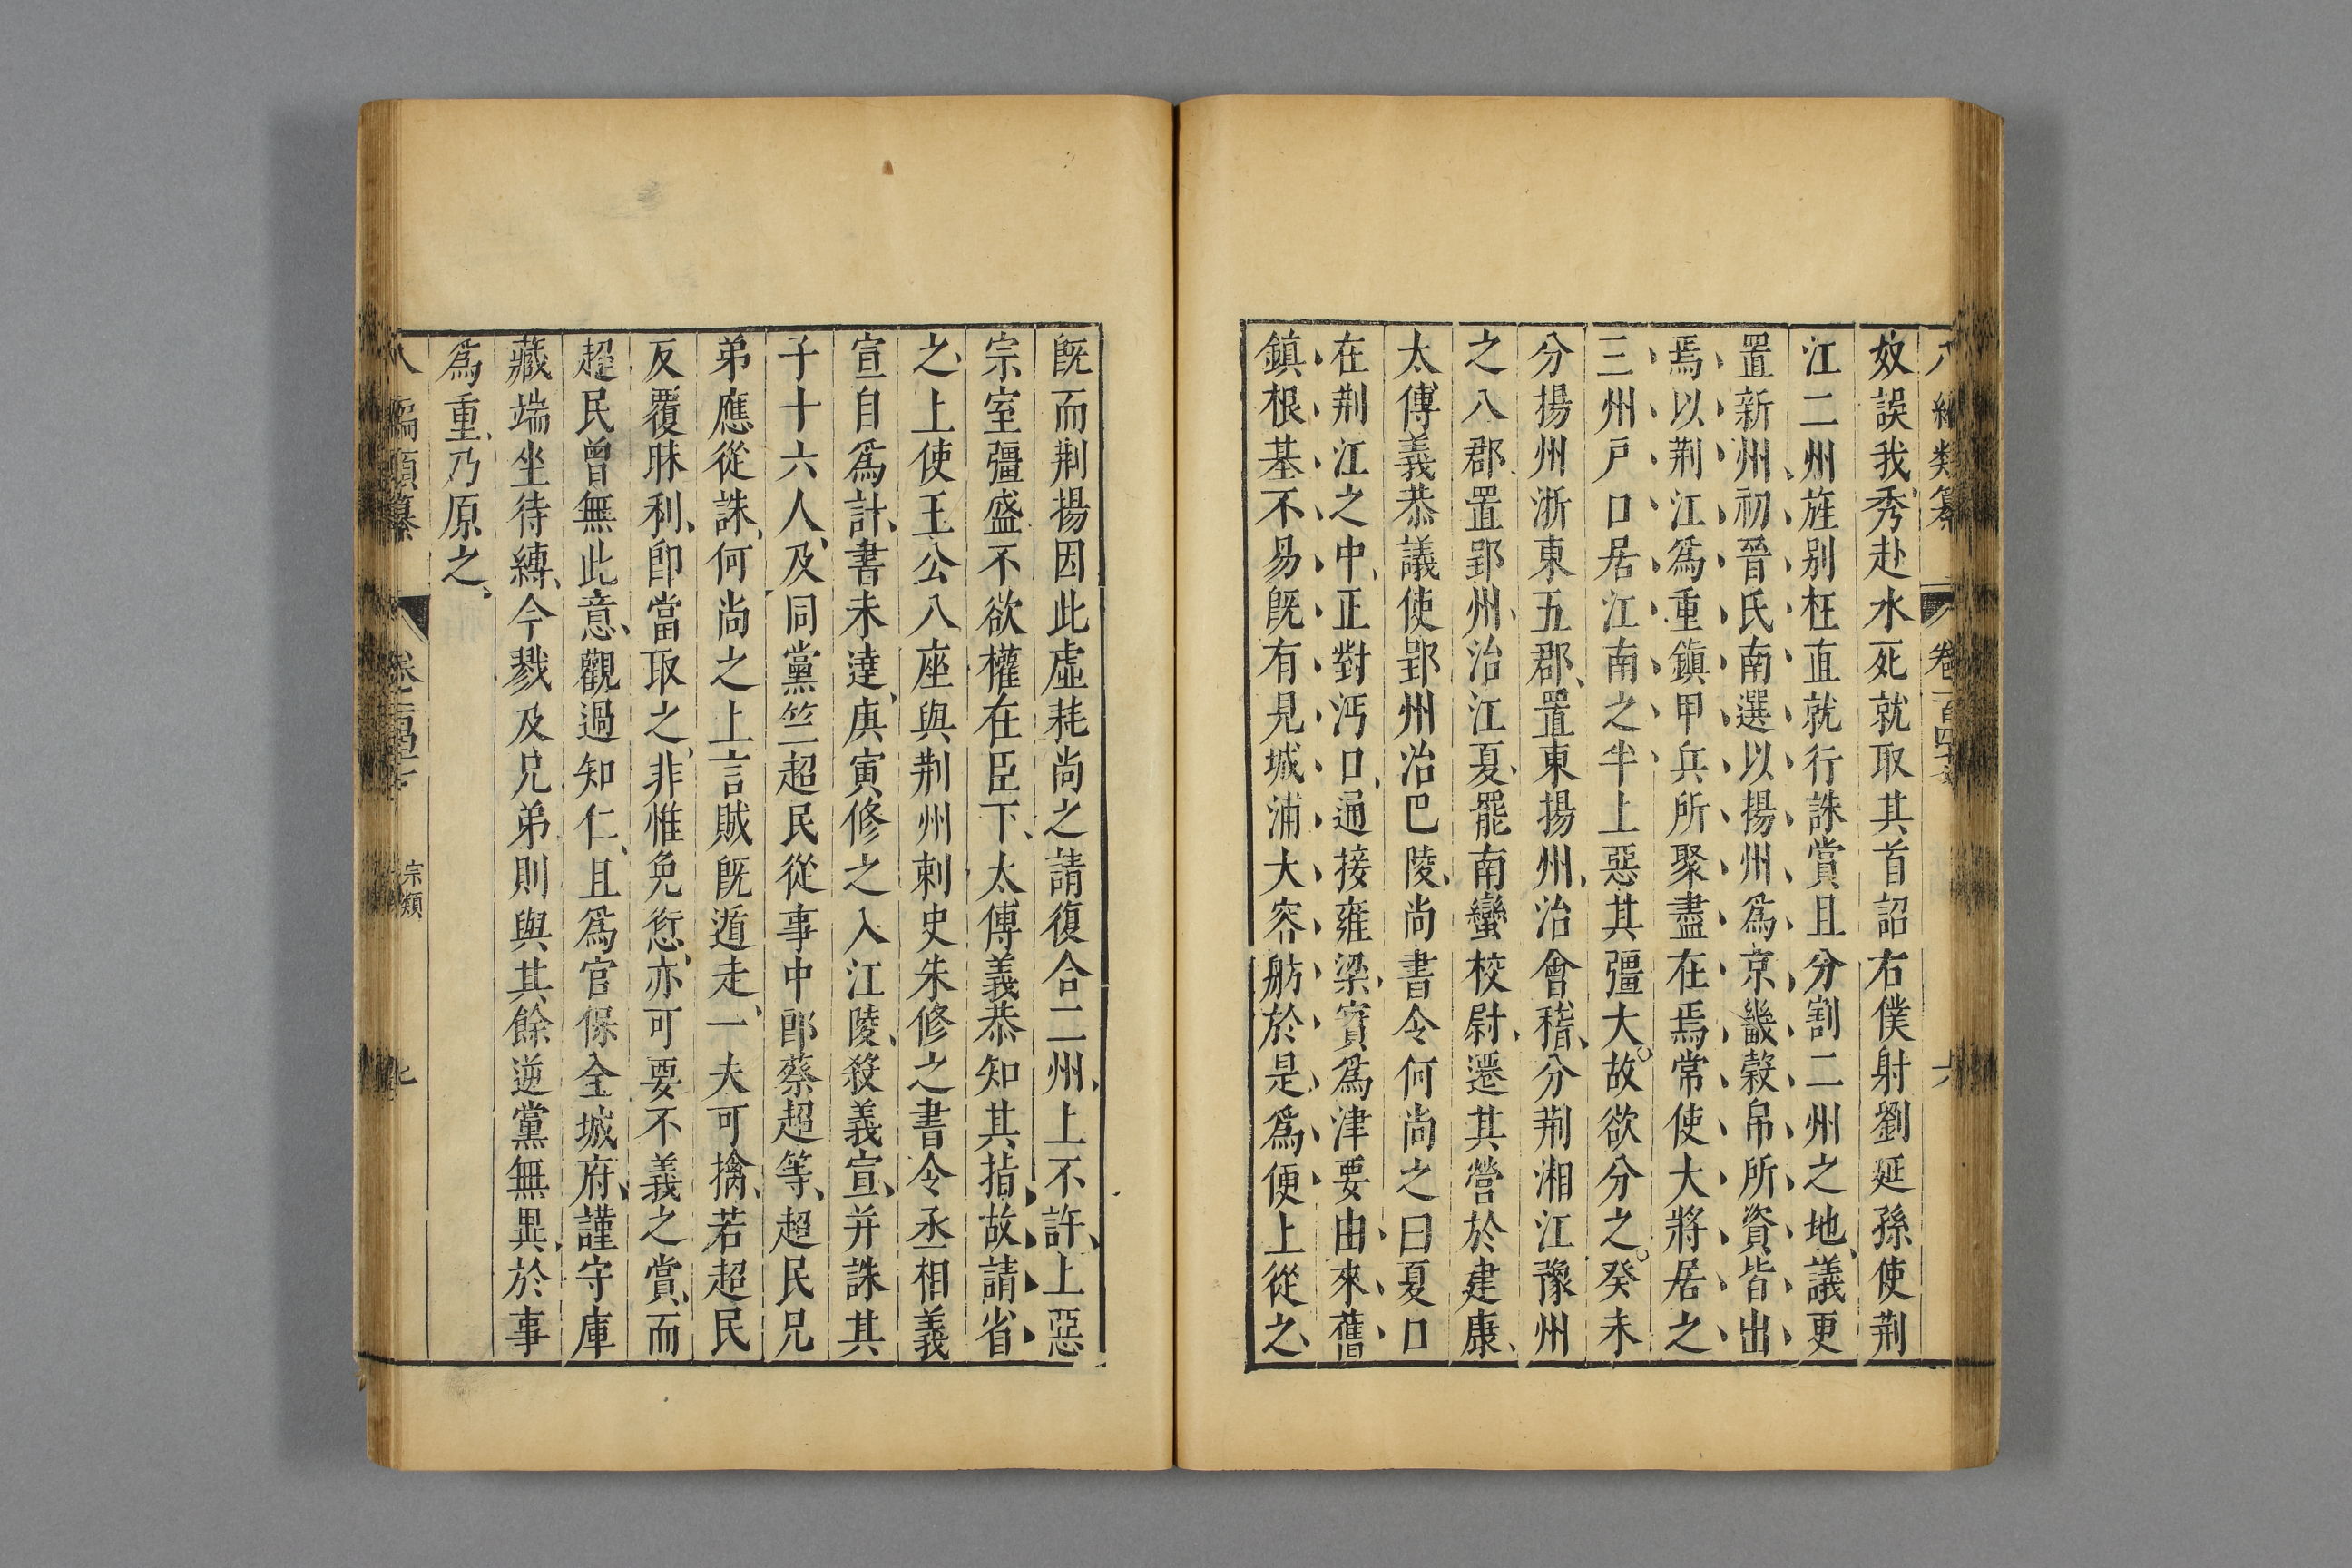 奴誤我秀赴水死就取其首詔右僕射劉延孫使荆
江二州旌别枉直就行誅賞且分割二州之地議更
置新州初晉氏南選以揚州爲京畿榖帛所資皆出
焉以荆江爲重鎮甲兵所聚盡在焉常使大將居之
三州戸口居江南之半上惡其彊大故欲分之癸未
分揚州浙東五郡置東揚州治會稽分荆湘江豫州
之八郡置郢州治江夏罷南蠻校尉遷其營於建康
太傅義恭議使郢州治巴陵尚書令何尚之曰夏口
在荆江之中正對沔口通接雍梁實爲津要由來舊
鎮根基不易既有見城浦大容舫於是爲便上從之
既而荆揚因此虛耗尚之請復合二州上不許上惡
宗室彊盛不欲權在臣下太傅義恭知其指故請省
之上使王公八座與荆州刺史朱修之書令丞相義
宣自爲計書未達庚寅修之入江陵殺義宣并誅其
子十六人及同黨竺超民從事中郎蔡超等超民兄
弟應從誅何尚之上言賊既遁走一夫可擒若超民
反覆昧利即當取之非惟免愆亦可要不義之賞而
超民曾無此意觀過知仁且爲官保全城府謹守庫
藏端坐待縛今戮及兄弟則與其餘逆黨無異於事
爲重乃原之
八編類纂 卷一百四十 宗類 七